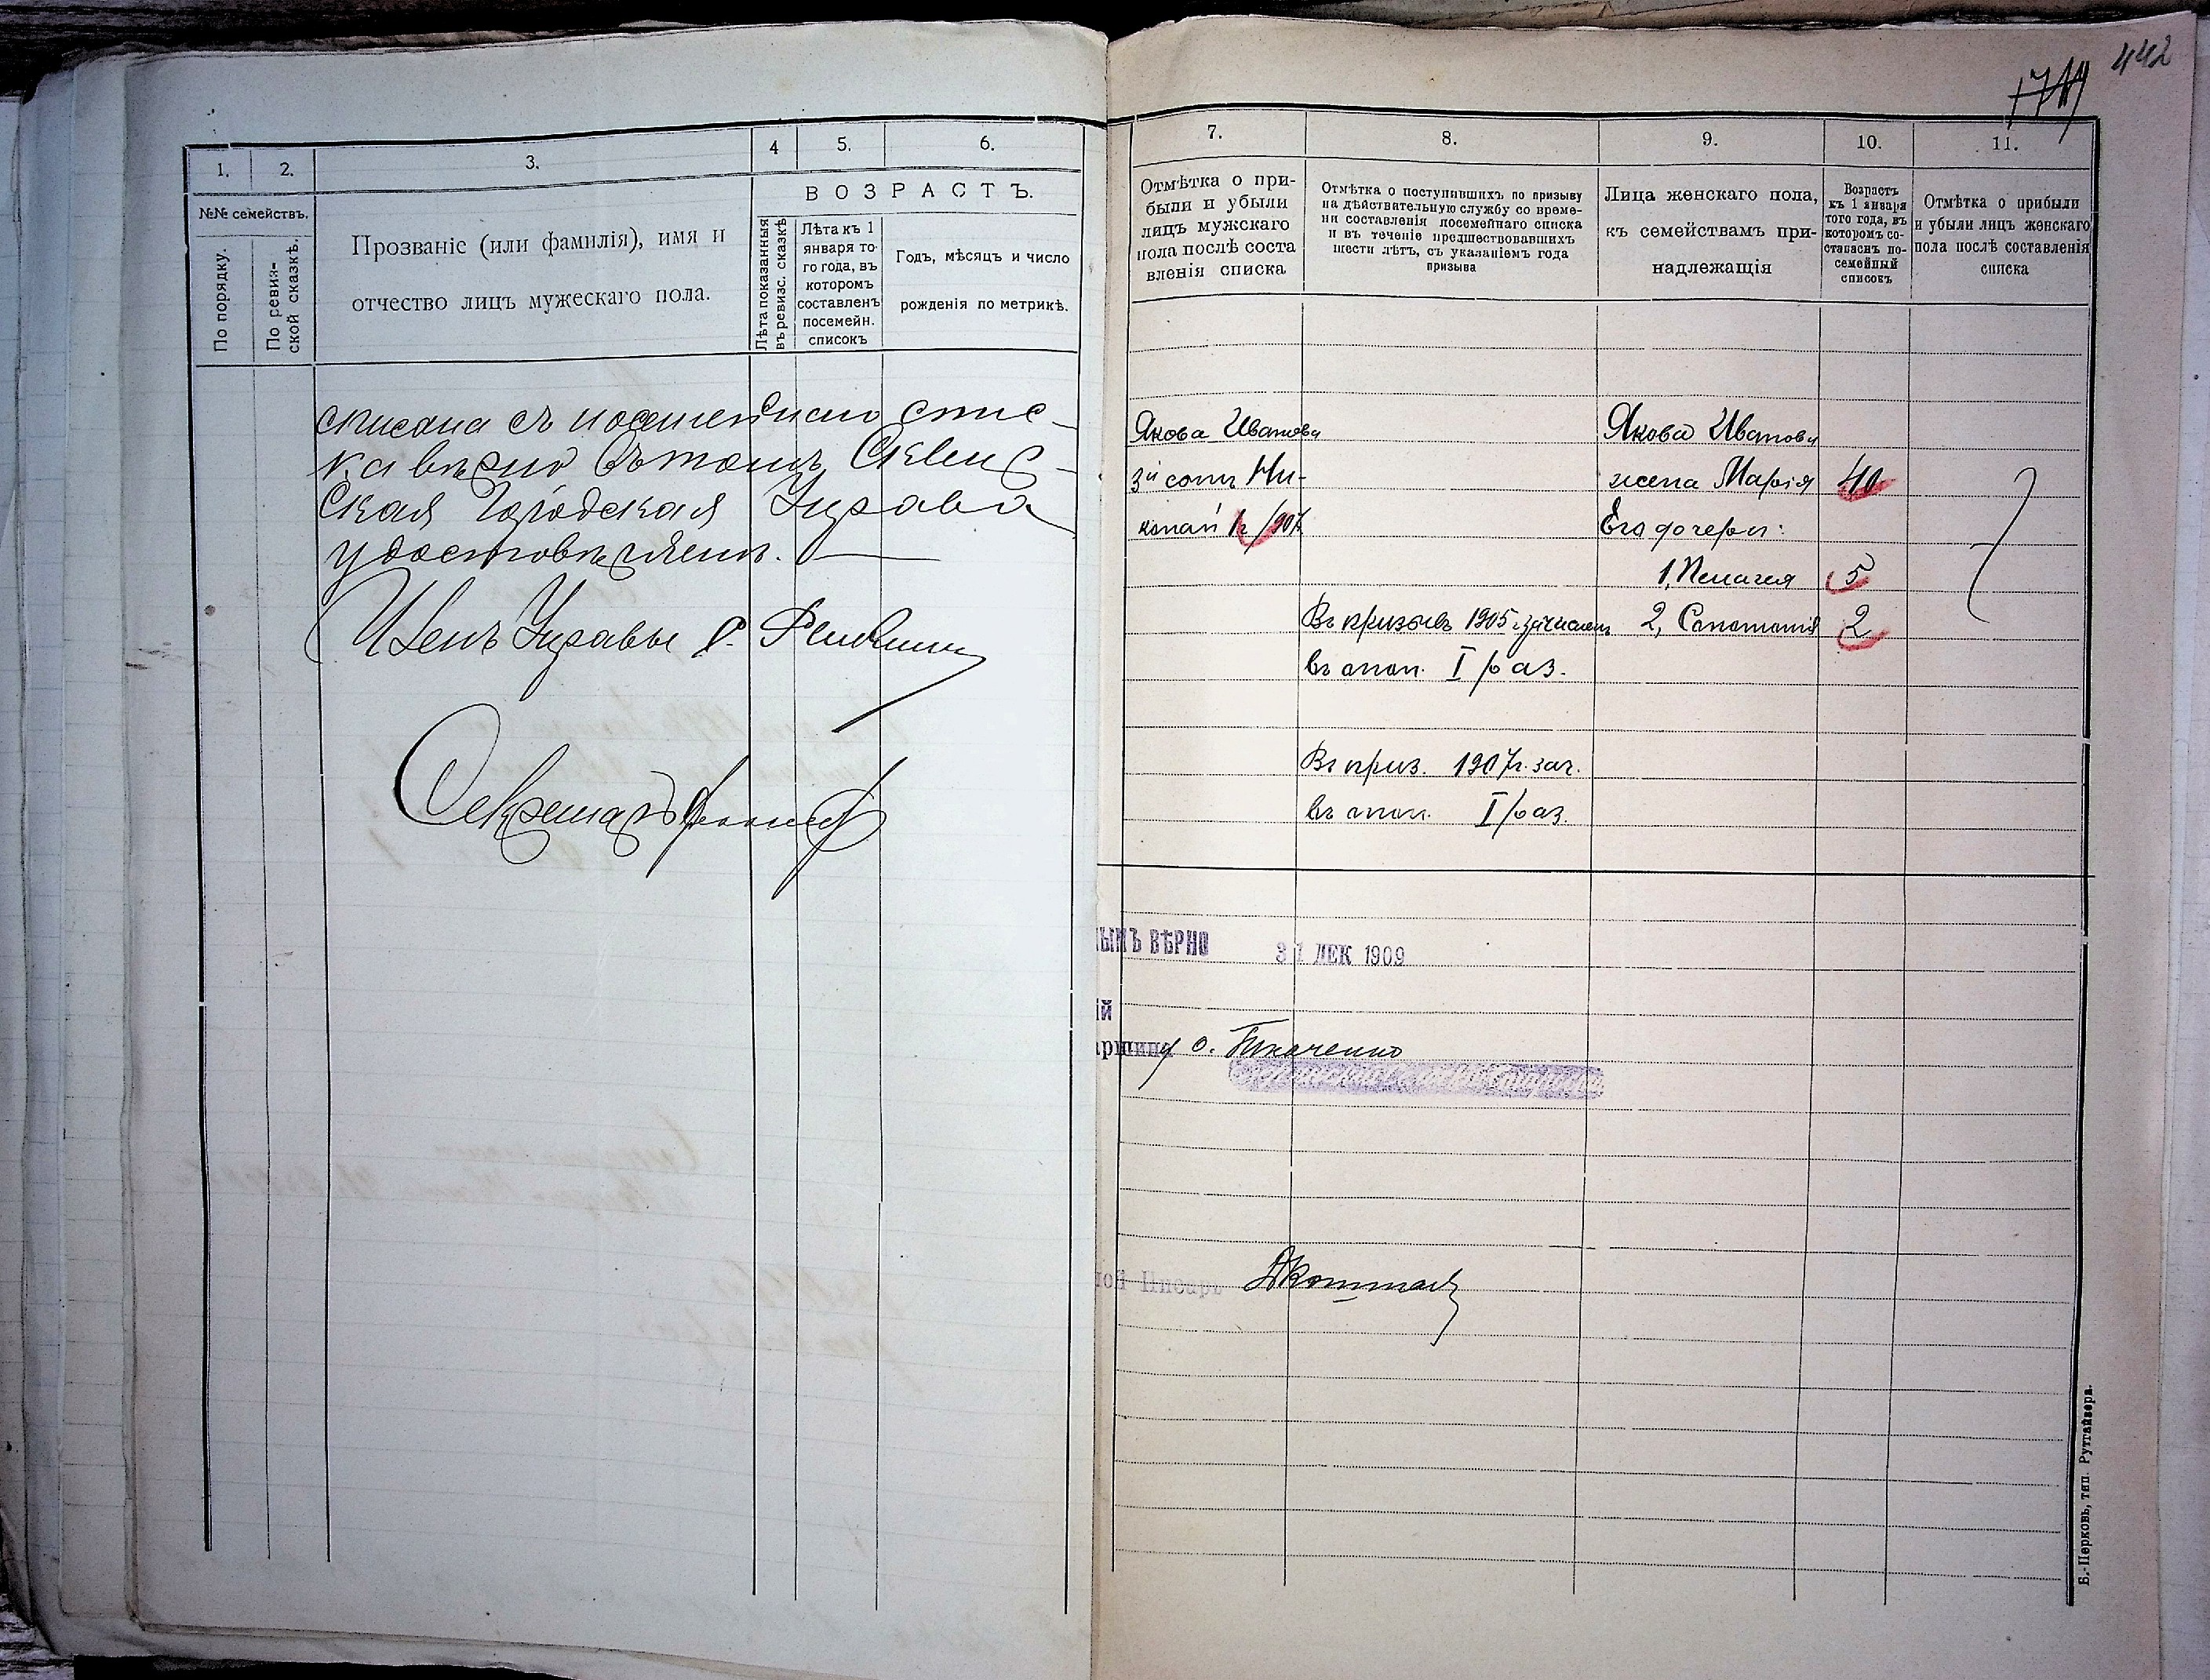 442
1. 2. 3. 4 5. 6.
№№ семействъ.
По порядку.
По ревиз-
ской сказкѣ.
Прозваніе (или фамилія), имя и
отчество лицъ мужескаго пола.
ВОЗРАСТЪ.
Лѣта показанныя
въ ревизс. сказкѣ
Лѣта къ 1
января то-
го года, въ
котором
составленъ
посемейн.
списокъ
Годъ, мѣсяцъ и число
рожденія по метрикѣ.
списка съ посемейнаго спис-
ка вѣрно въ томъ, Сквир-
ская Городская Управа
удостовѣряетъ.
Членъ Управы
Секретарь
7. 8. 9. 10. 11.
Отмѣтка о при-
были и убыли
лицъ мужскаго
пола послѣ соста
вленія списка
Отмѣтка о поступившихъ по призыву
на дѣйствительную службу со време-
ни составленія посемейнаго списка
и въ теченіе предшествовавшихъ
шести лѣтъ, съ указаніемъ года
призыва
Лица женскаго пола,
къ семействамъ при-
надлежащія
Возрастъ
къ 1 января
того года, въ
которомъ со-
ставленъ по-
семейный
списокъ
Отмѣтка о прибыли
и убыли лицъ женскаго
пола послѣ составленія
списка
Якова Иванова
3й сынъ Ни-
колай
Якова Иванова
жена Марія 40
Его дочери:
1, Пелагея 5
2, Соломонія 2
Въ призывъ 1905 г. зачислен
въ опол. I раз.
Въ приз. 1907 г. зач.
въ опол. I раз.
ЫМЪ ВѢРНО 31 ДЕК 1909
ій
аршина о. Ткаченко
ной Писарь
Б.-Церковь, тип. Рутгайзера.